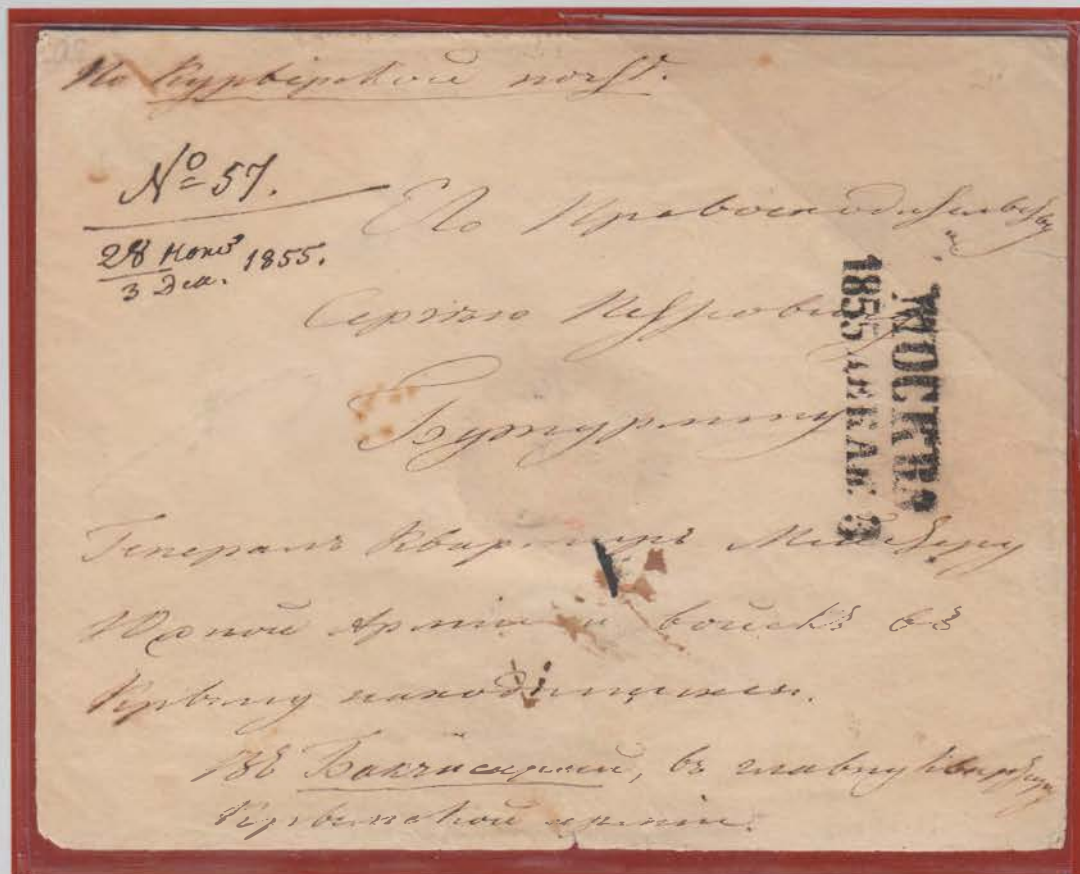 По Курьерской почт.
№ 57.
28 Нояб
3 Дек. 1855.
Его Превосходительству
Сергѣю Петровичу
Бутурлину
Генералъ Квартирмейстеру
Южной Арміи и войскъ въ
Крыму находящихся.
Въ Бакчисарай, въ главную Квартиру
Крымской арміи.
МОСКВА
1855 ДЕКАБ. 3